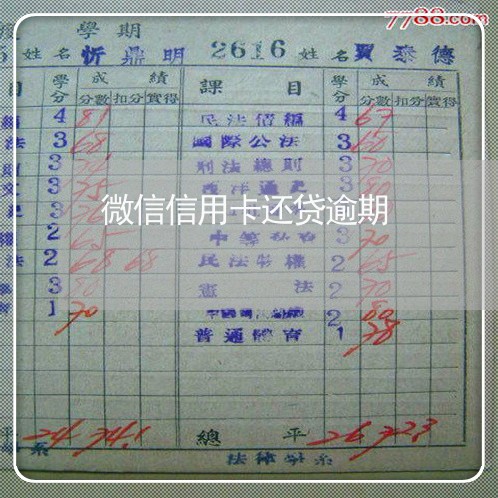 7788.com
學期
5 姓名 忻鼎明 2616 姓名 賈泰德
目 學分 成績 課目 學分 成績
分數 扣分 實得 分數 扣分 實得
4 81 民法債編 4 67
法 3 68 國際公法 3 60
3 刑法總則 3 70
文 3 75 西洋通史 3 80
3
微信信用卡还贷逾期
權 2 65 3 70
法 2 68 68 民法物權 2 65
3 80 憲法 2 70
1 70 2 80
普通體育 1 78
平 24 74.1 總平 26 72.3
系 法律學系